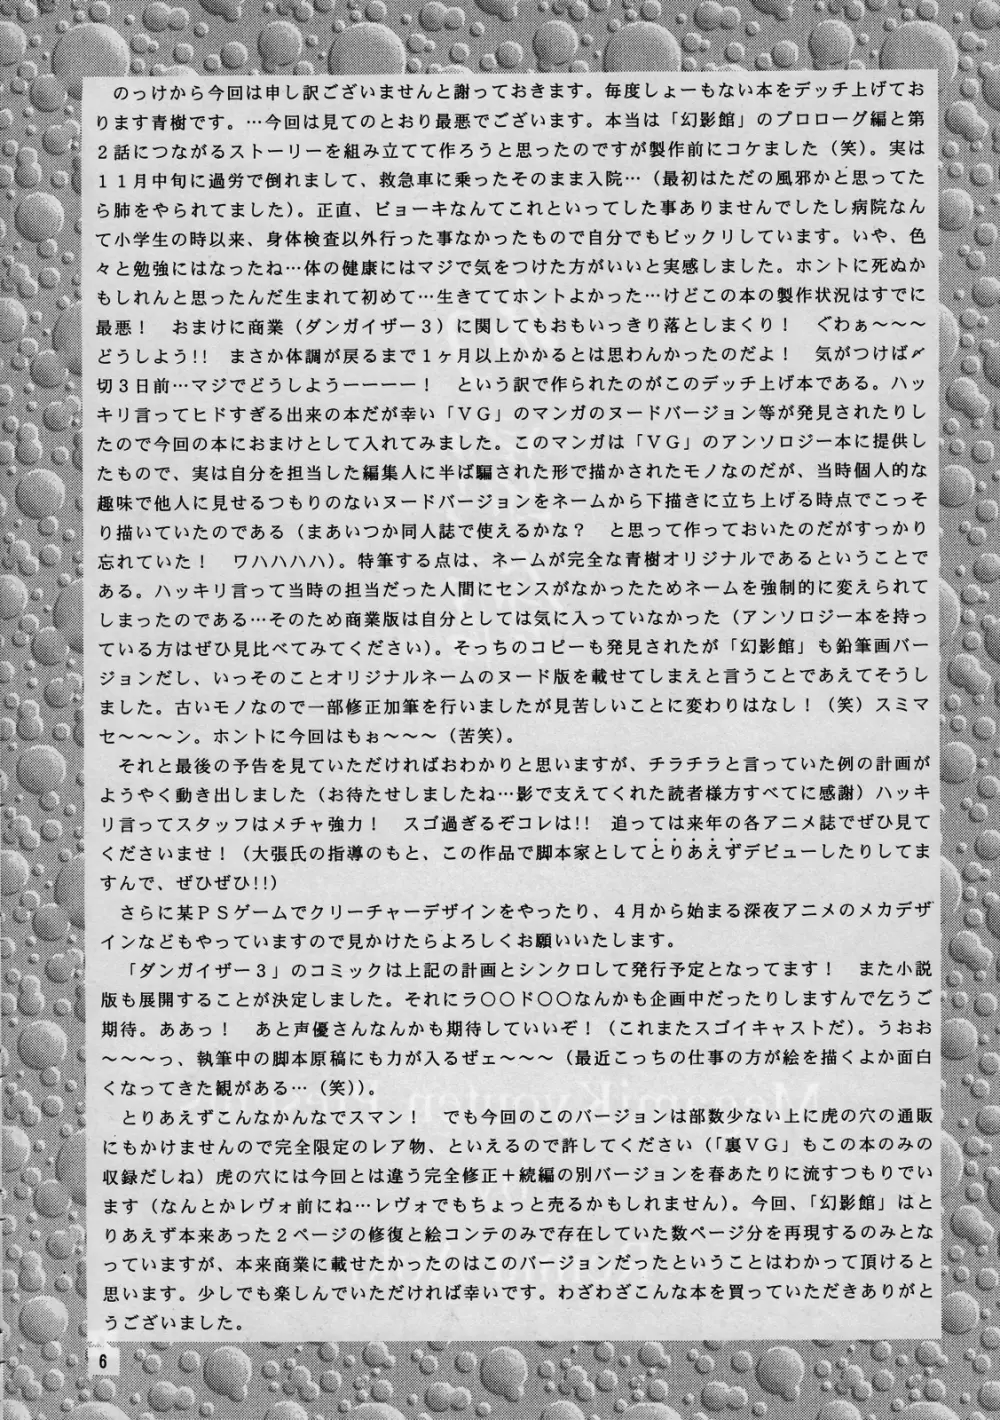 のっけから今回は申し訳ございませんと謝っておきます。毎度しょーもない本をデッチ上げてお
ります青樹です。…今回は見てのとおり最悪でございます。本当は「幻影館」のプロローグ編と第
２話につながるストーリーを組み立てて作ろうと思ったのですが製作前にコケました（笑）。実は
１１月中旬に過労で倒れまして、救急車に乗ったそのまま入院…（最初はただの風邪かと思ってた
ら肺をやられてました）。正直、ビョーキなんてこれといってした事ありませんでしたし病院なん
て小学生の時以来、身体検査以外行った事なかったもので自分でもビックリしています。いや、色
々と勉強にはなったね…体の健康にはマジで気をつけた方がいいと実感しました。ホントに死ぬか
もしれんと思ったんだ生まれて初めて…生きててホントよかった…けどこの本の製作状況はすでに
最悪！　おまけに商業（ダンガイザー３）に関してもおもいっきり落としまくり！　ぐわぁ〜〜〜
どうしよう!!　まさか体調が戻るまで１ヶ月以上かかるとは思わんかったのだよ！　気がつけば〆
切３日前…マジでどうしようーーーー！　という訳で作られたのがこのデッチ上げ本である。ハッ
キリ言ってヒドすぎる出来の本だが幸い「ＶＧ」のマンガのヌードバージョン等が発見されたりし
たので今回の本におまけとして入れてみました。このマンガは「ＶＧ」のアンソロジー本に提供し
たもので、実は自分を担当した編集人に半ば騙された形で描かされたモノなのだが、当時個人的な
趣味で他人に見せるつもりのないヌードバージョンをネームから下描きに立ち上げる時点でこっそ
り描いていたのである（まあいつか同人誌で使えるかな？　と思って作っておいたのだがすっかり
忘れていた！　ワハハハハ）。特筆する点は、ネームが完全な青樹オリジナルであるということで
ある。ハッキリ言って当時の担当だった人間にセンスがなかったためネームを強制的に変えられて
しまったのである…そのため商業版は自分としては気に入っていなかった（アンソロジー本を持っ
ている方はぜひ見比べてみてください）。そっちのコピーも発見されたが「幻影館」も鉛筆画バー
ジョンだし、いっそのことオリジナルネームのヌード版を載せてしまえと言うことであえてそうし
ました。古いモノなので一部修正加筆を行いましたが見苦しいことに変わりはなし！（笑）スミマ
セ〜〜〜ン。ホントに今回はもぉ〜〜〜（苦笑）。
それと最後の予告を見ていただければおわかりと思いますが、チラチラと言っていた例の計画が
ようやく動き出しました（お待たせしましたね…影で支えてくれた読者様方すべてに感謝）ハッキ
リ言ってスタッフはメチャ強力！　スゴ過ぎるぞコレは!!　追っては来年の各アニメ誌でぜひ見て
くださいませ！（大張氏の指導のもと、この作品で脚本家としてとりあえずデビューしたりしてま
すんで、ぜひぜひ!!）
さらに某ＰＳゲームでクリーチャーデザインをやったり、４月から始まる深夜アニメのメカデザ
インなどもやっていますので見かけたらよろしくお願いいたします。
「ダンガイザー３」のコミックは上記の計画とシンクロして発行予定となってます！　また小説
版も展開することが決定しました。それにラ〇〇ド〇〇なんかも企画中だったりしますんで乞うご
期待。ああっ！　あと声優さんなんかも期待していいぞ！（これまたスゴイキャストだ）。うおお
〜〜〜っ、執筆中の脚本原稿にも力が入るぜェ〜〜〜（最近こっちの仕事の方が絵を描くよか面白
くなってきた観がある…（笑））。
とりあえずこんなかんなでスマン！　でも今回のこのバージョンは部数少ない上に虎の穴の通販
にもかけませんので完全限定のレア物、といえるので許してください（「裏ＶＧ」もこの本のみの
収録だしね）虎の穴には今回とは違う完全修正＋続編の別バージョンを春あたりに流すつもりでい
ます（なんとかレヴォ前にね…レヴォでもちょっと売るかもしれません）。今回、「幻影館」はと
りあえず本来あった２ページの修復と絵コンテのみで存在していた数ページ分を再現するのみとな
っていますが、本来商業に載せたかったのはこのバージョンだったということはわかって頂けると
思います。少しでも楽しんでいただければ幸いです。わざわざこんな本を買っていただきありがと
うございました。
6